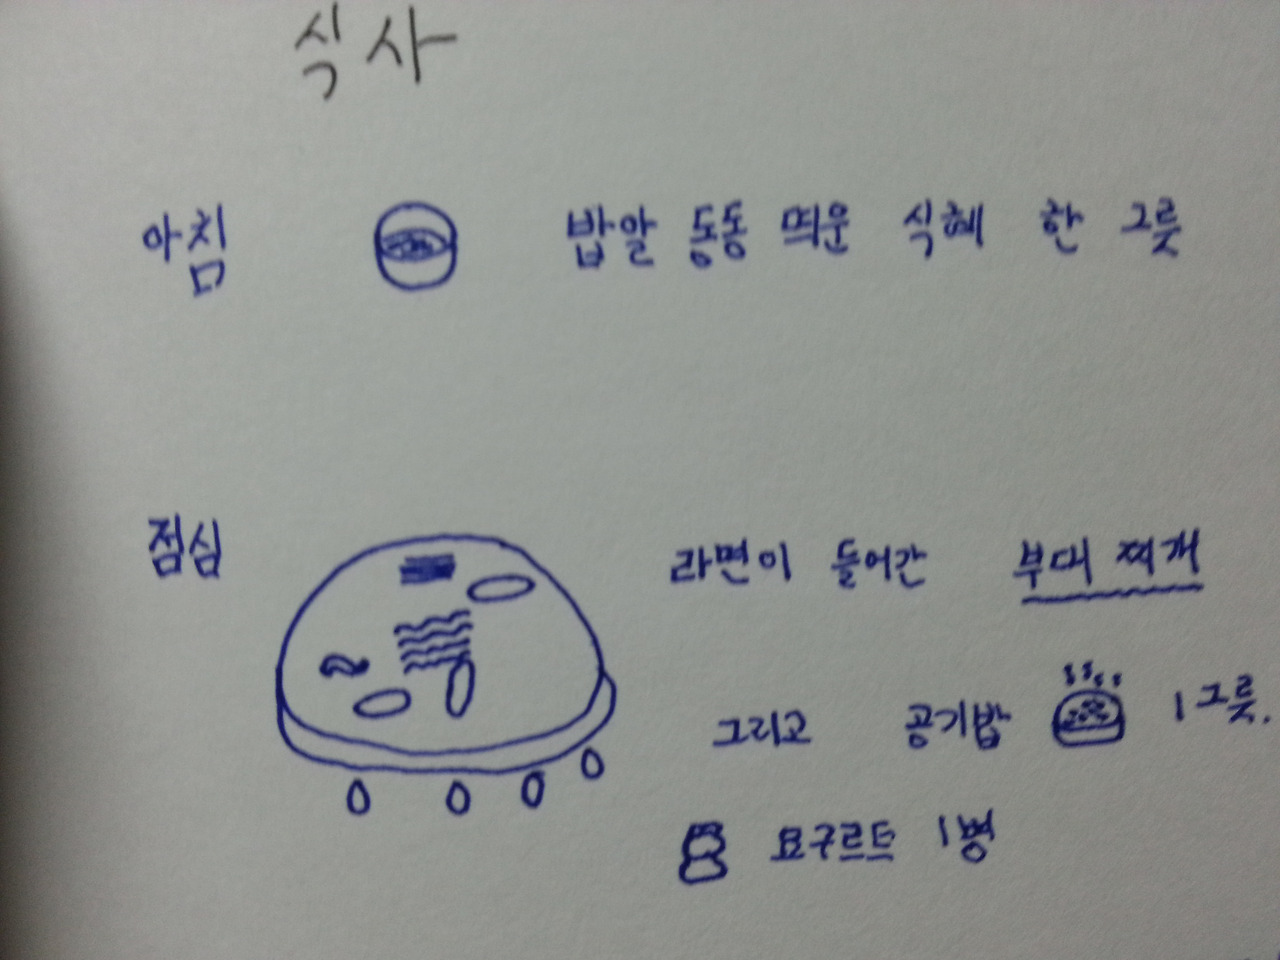 식사
아침 밥알 동동 띄운 식혜 한 그릇
점심 라면이 들어간 부대 찌개
그리고 공기밥 1그릇.
요구르트 1병